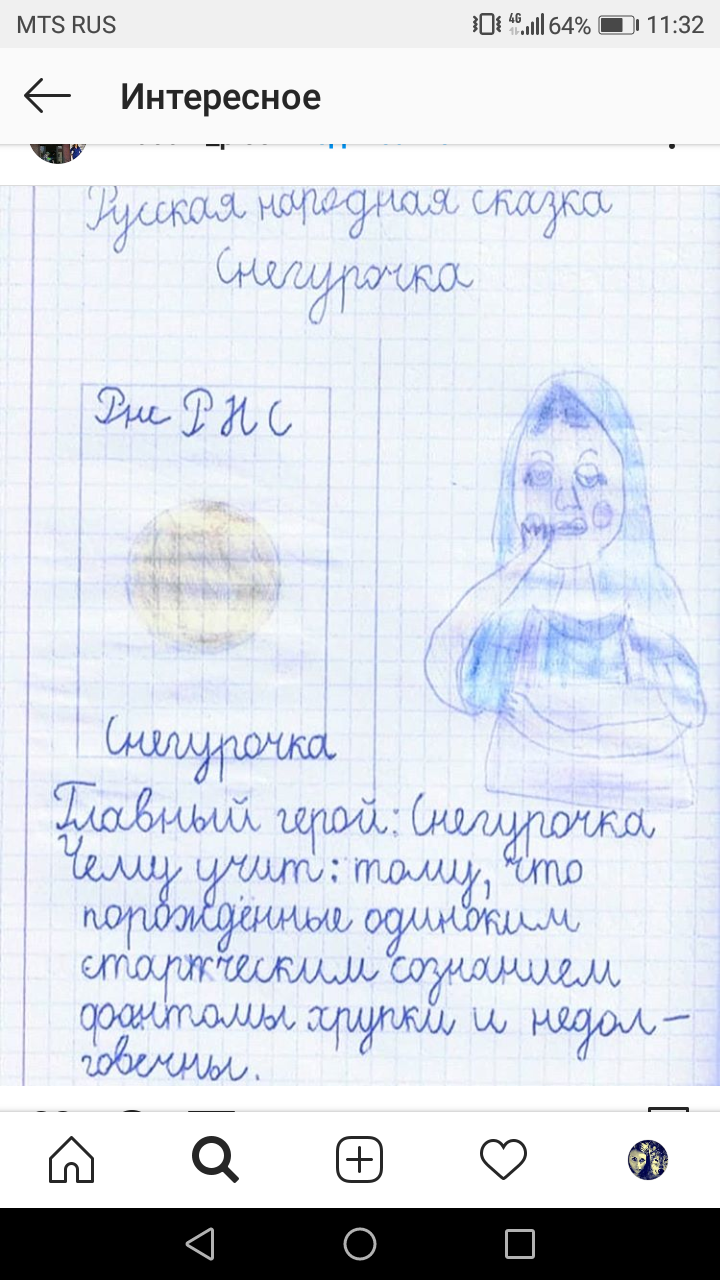 MTS RUS 4G 64% 11:32
Интересное
Русская народная сказка
Снегурочка
Рнс Р Н С
Снегурочка
Главный герой: Снегурочка
Чему учит: тому, что
порождённые одиноким
старческим сознанием
фантомы хрупки и недол-
говечны.